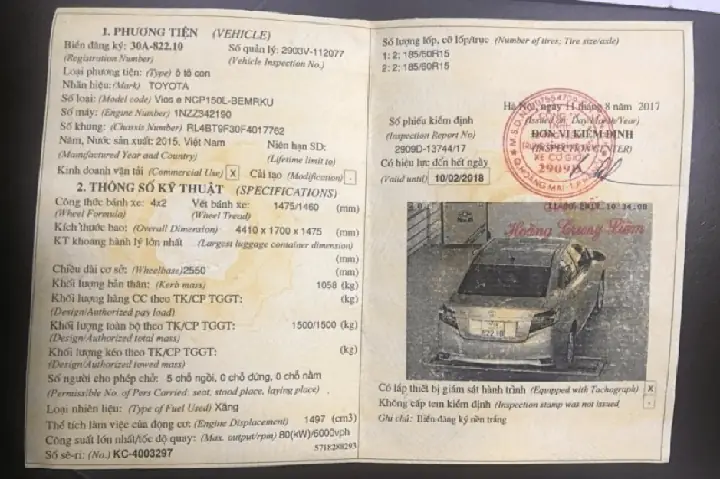 1. PHƯƠNG TIỆN (VEHICLE)
Biển đăng ký: 30A-822.10 Số quản lý: 2903V-112077
(Registration Number) (Vehicle Inspection No.)
Loại phương tiện: (Type) ô tô con
Nhãn hiệu: (Mark) TOYOTA
Số loại: (Model code) Vios e NCP150L-BEMRKU
Số máy: (Engine Number) 1NZZ342190
Số khung: (Chassis Number) RL4BT9F30F4017762
Năm, Nước sản xuất: 2015, Việt Nam Niên hạn SD:
(Manufactured Year and Country) (Lifetime limit to)
Kinh doanh vận tải (Commercial Use) X Cải tạo (Modification) -
2. THÔNG SỐ KỸ THUẬT (SPECIFICATIONS)
Công thức bánh xe: 4x2 Vết bánh xe: 1475/1460 (mm)
(Wheel Formula) (Wheel Tread)
Kích thước bao: (Overall Dimension) 4410 x 1700 x 1475 (mm)
KT khoang hành lý lớn nhất (Largest luggage container dimension)
(mm)
Chiều dài cơ sở: (Wheelbase) 2550 (mm)
Khối lượng bản thân: (Kerb mass) 1058 (kg)
Khối lượng hàng CC theo TK/CP TGGT: (kg)
(Design/Authorized pay load)
Khối lượng toàn bộ theo TK/CP TGGT: 1500/1500 (kg)
(Design/Authorized total mass)
Khối lượng kéo theo TK/CP TGGT: (kg)
(Design/Authorized towed mass)
Số người cho phép chở: 5 chỗ ngồi, 0 chỗ đứng, 0 chỗ nằm
(Permissible No. of Pers Carried: seat, stood place, laying place)
Loại nhiên liệu: (Type of Fuel Used) Xăng
Thể tích làm việc của động cơ: (Engine Displacement) 1497 (cm3)
Công suất lớn nhất/tốc độ quay: (Max. output/rpm) 80(kW)/6000vph
Số sê-ri: (No.) KC-4003297 5718288293
Số lượng lốp, cỡ lốp/trục (Number of tires; Tire size/axle)
1: 2; 185/60R15
2: 2; 185/60R15
Hà Nội, ngày 11 tháng 8 năm 2017
Số phiếu kiểm định (Issued on: Day/Month/Year)
(Inspection Report No) ĐƠN VỊ KIỂM ĐỊNH
2909D-13744/17 (INSPECTION CENTER)
Có hiệu lực đến hết ngày XE CƠ GIỚI
(Valid until) 10/02/2018 2909D
Q.HOÀNG MAI
Hoàng Trung Kiêm
30A
822.10
Có lắp thiết bị giám sát hành trình (Equipped with Tachograph) X
Không cấp tem kiểm định (Inspection stamp was not issued) -
Ghi chú: Biển đăng ký nền trắng